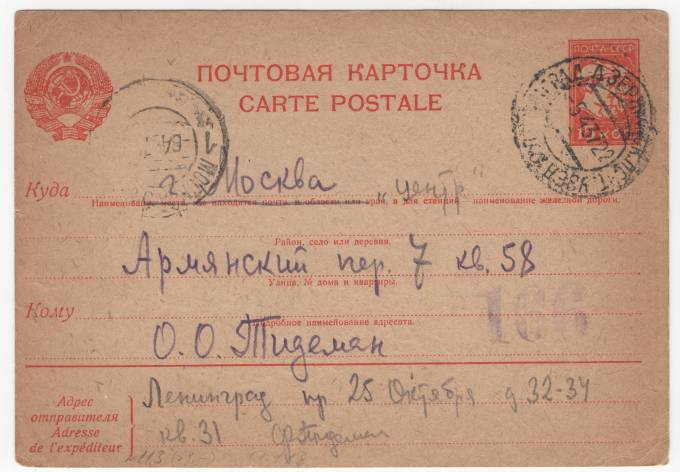 ПОЧТОВАЯ КАРТОЧКА
CARTE POSTALE
ПОЧТА-СССР
Куда г. Москва „центр"
Наименование места, где находится почта, и области или края, а для станций наименование железной дороги.
Район, село или деревня.
Армянский пер. 7 кв. 58
Улица, № дома и квартиры.
Кому
Подробное наименование адресата.
166
О. О. Тидеман
Ленинград пр 25 Октября д. 32-34
кв. 31
Адрес
отправителя
Adresse
de l'expéditeur